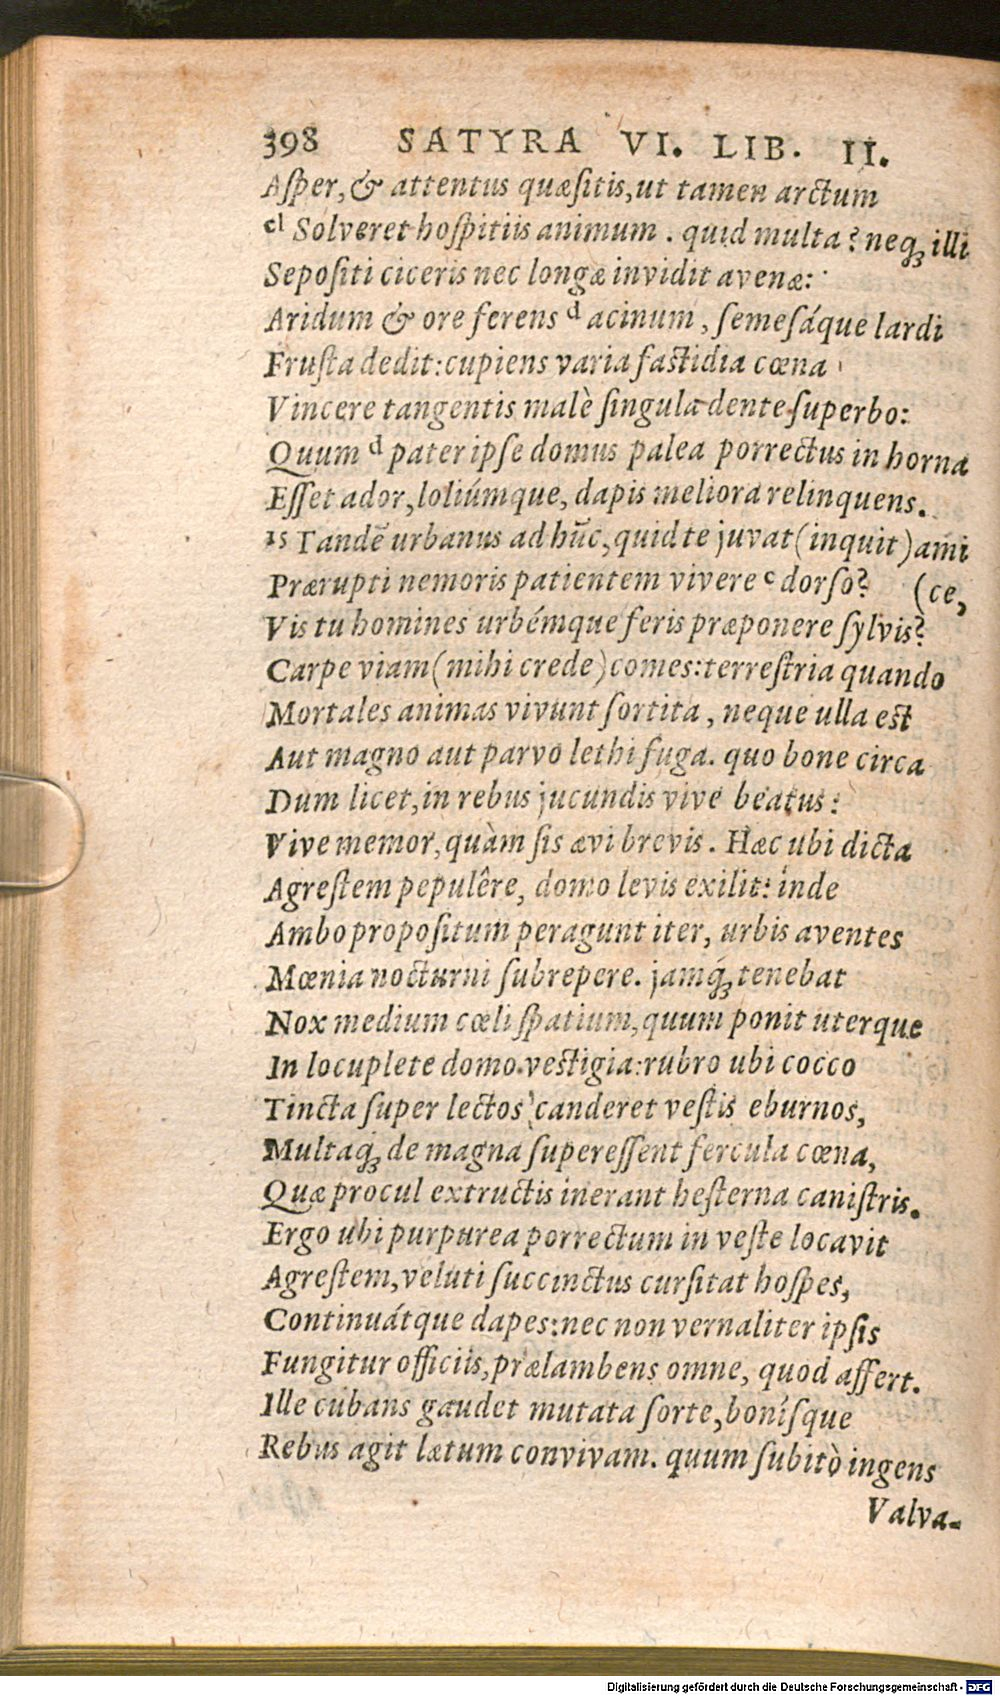 398 SATYRA VI. LIB. II.
Aſper, & attentus quæſitis, ut tamen arctum
cl Solveret hoſpitiis animum. quid multa? neqꝫ illi
Sepoſiti ciceris nec longæ invidit avenæ:
Aridum & ore ferens d acinum, ſemeſáque lardi
Fruſta dedit: cupiens varia faſtidia cœna
Vincere tangentis malè ſingula dente ſuperbo:
Quum d pater ipſe domus palea porrectus in horna
Eſſet ador, loliúmque, dapis meliora relinquens.
15 Tandē urbanus ad hūc, quid te juvat (inquit) ami
Prærupti nemoris patientem vivere c dorſo? (ce,
Vis tu homines urbémque feris præponere ſylvis?
Carpe viam (mihi crede) comes: terreſtria quando
Mortales animas vivunt ſortita, neque ulla eſt
Aut magno aut parvo lethi fuga. quo bone circa
Dum licet, in rebus jucundis vive beatus:
Vive memor, quàm ſis ævi brevis. Hæc ubi dicta
Agreſtem pepulêre, domo levis exilit: inde
Ambo propoſitum peragunt iter, urbis aventes
Mœnia nocturni ſubrepere. jamq́ꝫ tenebat
Nox medium cœli ſpatium, quum ponit uterque
In locuplete domo veſtigia: rubro ubi cocco
Tincta ſuper lectos canderet veſtis eburnos,
Multaqꝫ de magna ſupereſſent fercula cœna,
Quæ procul extructis inerant heſterna caniſtris.
Ergo ubi purpurea porrectum in veſte locavit
Agreſtem, veluti ſuccinctus curſitat hoſpes,
Continuátque dapes: nec non vernaliter ipſis
Fungitur officiis, prælambens omne, quod affert.
Ille cubans gaudet mutata ſorte, boníſque
Rebus agit lætum convivam. quum ſubitò ingens
Valva-
Digitalisierung gefördert durch die Deutsche Forschungsgemeinschaft - DFG